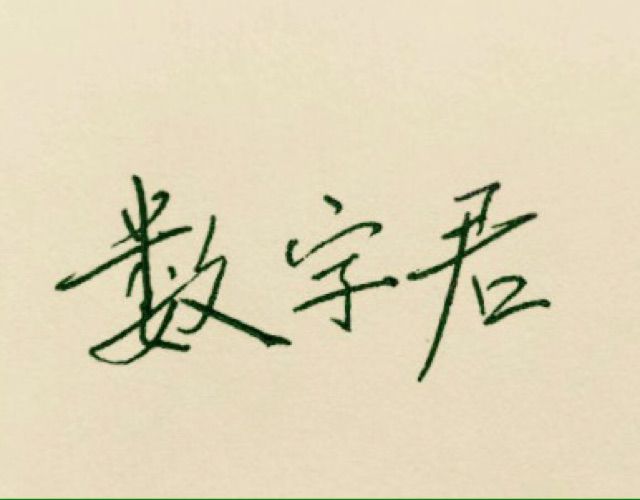 数字君